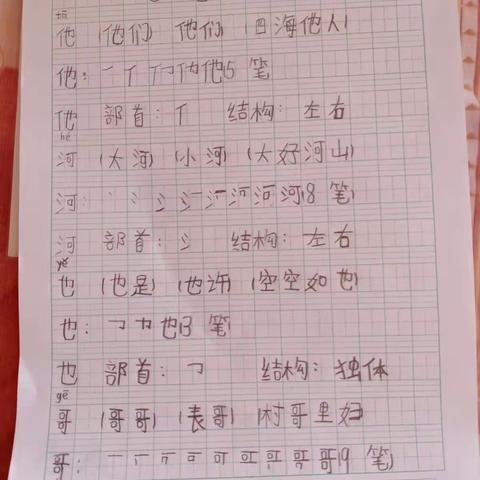 tā
他 (他们) 他们) (四海他人)
他: ノ 亻 亻 他他5 笔
他 部首: 亻 结构: 左右
hé
河 (大河) (小河) (大好河山)
河: 丶 冫 氵 氵 河河(8 笔)
河 部首: 氵 结构: 左右
yě
也 (也是) (也许) (空空如也)
也: 也(3 笔)
也 部首: 𠃌 结构: 独体
gē
哥 (哥哥) (表哥) (村哥里妇
哥: 一 哥(9 笔)